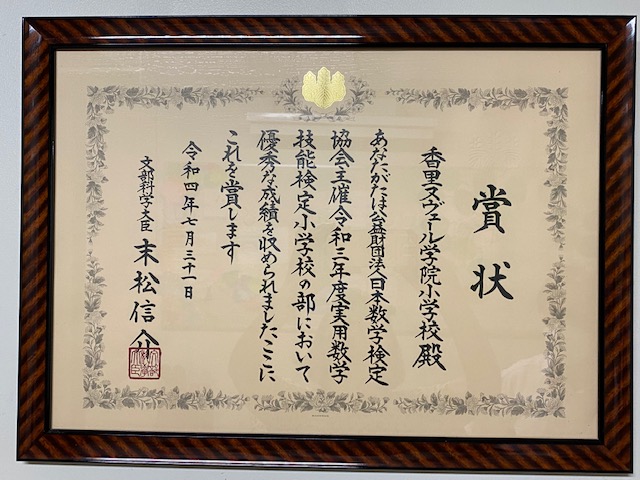 賞状
香里ヌヴェール学院小学校殿
あなたがたは公益財団法人日本数学検定
協会主催令和三年度実用数学
技能検定小学校の部において
優秀な成績を収められましたここに
これを賞します
令和四年七月三十一日
文部科学大臣 末松信介